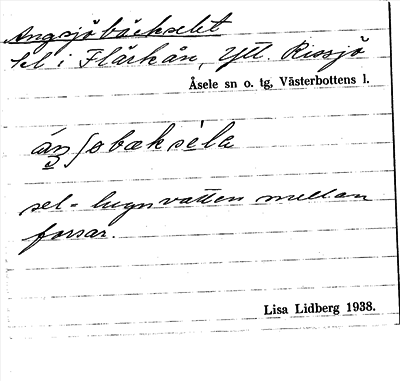 Ångsjöbäckselet
Sel i Flärkån, Ytt. Rissjö
Åsele sn o. tg, Västerbottens l.
áŋʃobækséla
sel = lugnvatten mellan
forsar.
Lisa Lidberg 1938.